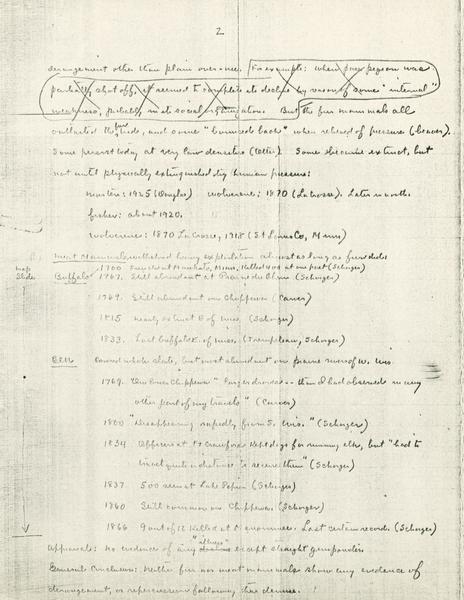 2
derangement other than plain over-use. For example: when passenger pigeon was
partially shot off, it seemed to complete its decline by reason of some "internal"
weakness, probably in its social organization. But the fur mammals all
outlasted the birds, and some "bounced back" when relieved of pressure (beaver).
fur
Some persist today at very low densities (otter). Some became extinct, but
not until physically extinguished by human pressure:
marten: 1925 (Douglas) wolverine: 1870 (LaCrosse). Later in north
fisher: about 1920.
wolverine: 1870 LaCrosse, 1918 (St Louis Co, Minn)
Meat Mammals withstood heavy exploitation almost as long as furs did:
map
Slides
1700. French at Mankato, Minn, killed 400 at one post (Schorger)
Buffalo 1767. Still abundant at Prairie du Chien (Schorger)
1769. Still abundant on Chippewa (Carver)
1815 nearly extinct E of Miss. (Schorger)
1833. Last buffalo E. of Miss. (Trempeleau, Schorger)
Elk Covered whole state, but most abundant on prairie rims of W. Wis.
1769. "Elk on River Chippewa" "larger droves -- than I had observed in any
other part of my travels" (Carver)
1800 "Disappearing rapidly from S. Wis." (Schorger)
1834 Officers at Ft Crawford kept dogs for running elk, but "had to
travel quite a distance to secure them" (Schorger)
1837 500 seen at Lake Pepin (Schorger)
1860 Still common on Chippewa (Schorger)
1866 9 out of 12 killed at Menominee. Last certain record. (Schorger)
Appraisal: No evidence of any "illness" except straight gunpowder.
General Conclusion: Neither fur nor meat mammals show any evidence of
derangement, or repercussion following their demise.